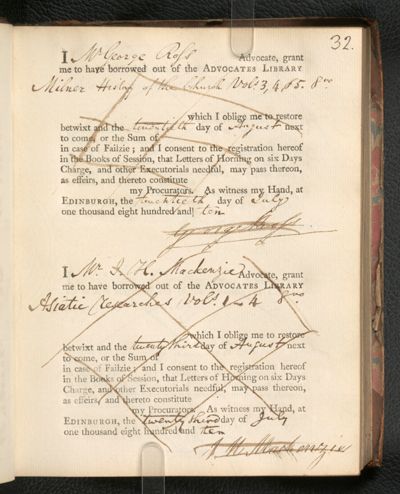 32.
I Mr George Ross Advocate, grant
me to have borrowed out of the ADVOCATES LIBRARY
Milner History of the Church Vols 3, 4, & 5. 8vo
which I oblige me to restore
betwixt and the twentieth day of August next
to come, or the Sum of
in case of Failzie; and I consent to the registration hereof
in the Books of Session, that Letters of Horning on six Days
Charge, and other Executorials needful, may pass thereon,
as effeirs, and thereto constitute
my Procurators. As witness my Hand, at
EDINBURGH, the twentieth day of July
one thousand eight hundred and ten
George Ross.
I Mr J. H. Mackenzie Advocate, grant
me to have borrowed out of the ADVOCATES LIBRARY
Asiatic Researches Vols 4 8vo
which I oblige me to restore
betwixt and the twenty third day of August next
to come, or the Sum of
in case of Failzie; and I consent to the registration hereof
in the Books of Session, that Letters of Horning on six Days
Charge, and other Executorials needful, may pass thereon,
as effeirs, and thereto constitute
my Procurators. As witness my Hand, at
EDINBURGH, the twenty third day of July
one thousand eight hundred and ten
J. H. Mackenzie